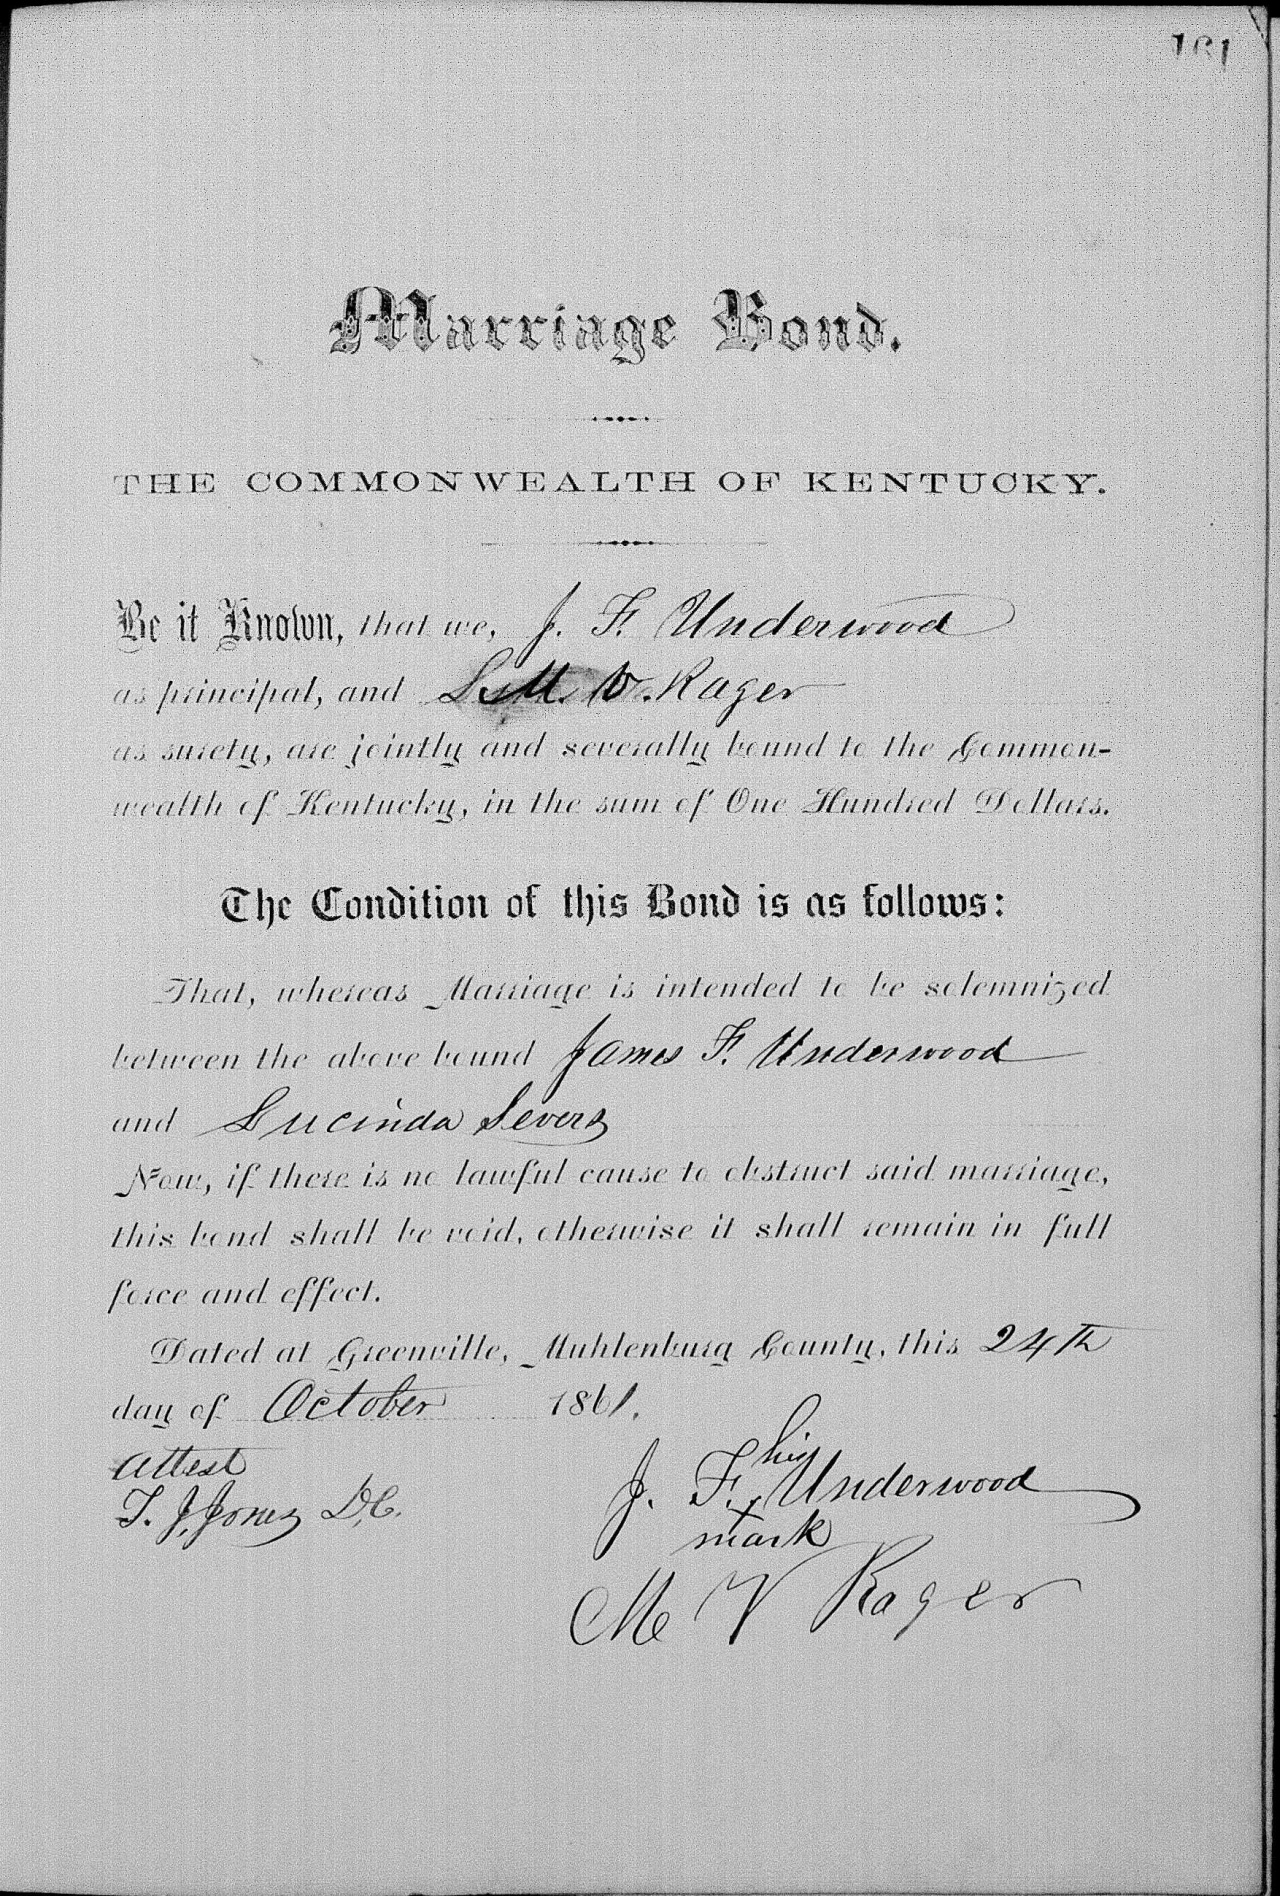 161
Marriage Bond.
THE COMMONWEALTH OF KENTUCKY.
Be it Known, that we, J. F. Underwood
as principal, and M. V. Rager
as surety, are jointly and severally bound to the Common-
wealth of Kentucky, in the sum of One Hundred Dollars.
The Condition of this Bond is as follows:
That, whereas Marriage is intended to be solemnized
between the above bound James F. Underwood
and Lucinda Severs
Now, if there is no lawful cause to obstruct said marriage,
this bond shall be void, otherwise it shall remain in full
force and effect.
Dated at Greenville, Muhlenburg County, this 24th
day of October 1861.
Attest
T. J. Jones D.C.
his
J. F. x Underwood
mark
M V Rager